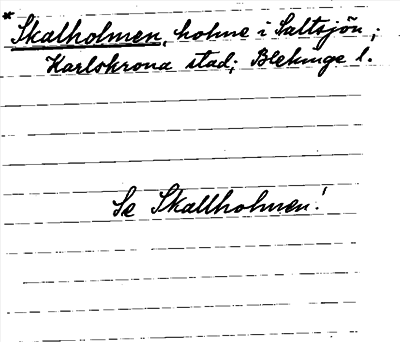 *Skalholmen, holme i Saltsjön;
Karlskrona stad; Blekinge l.
Se Skallholmen!